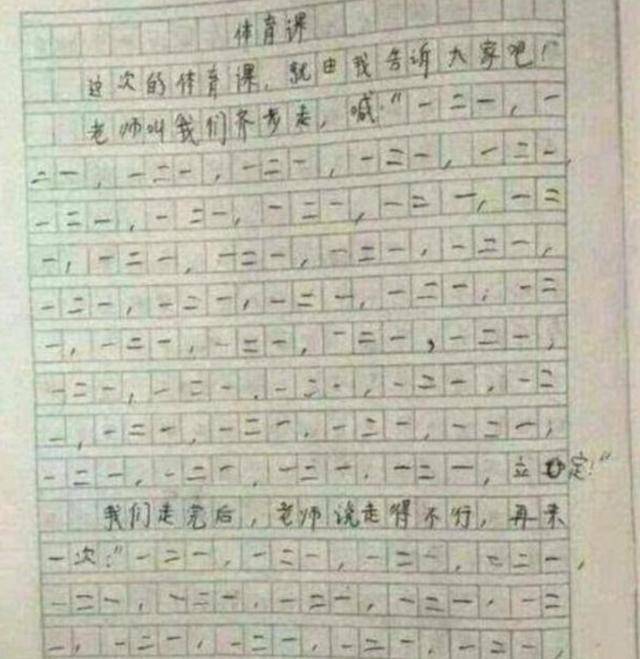 体育课
这次的体育课，就由我告诉大家吧！
老师叫我们齐步走，喊：“一二一，一
二一，一二一，一二一，一二一，一二一，
一二一，一二一，一二一，一二一，一二
一，一二一，一二一，一二一，一二一，
一二一，一二一，一二一，一二一，一二
一，一二一，一二一，一二一，一二一，
一二一，一二一，一二一，一二一，一二
一，一二一，一二一，一二一，一二一，
一二一，一二一，一二一，一二一，立定！”
我们走完后，老师说走得不行，再来
一次：“一二一，一二一，一二一，一二一，
一二一，一二一，一二一，一二一，一二
一，一二一，一二一，一二一，一二一，